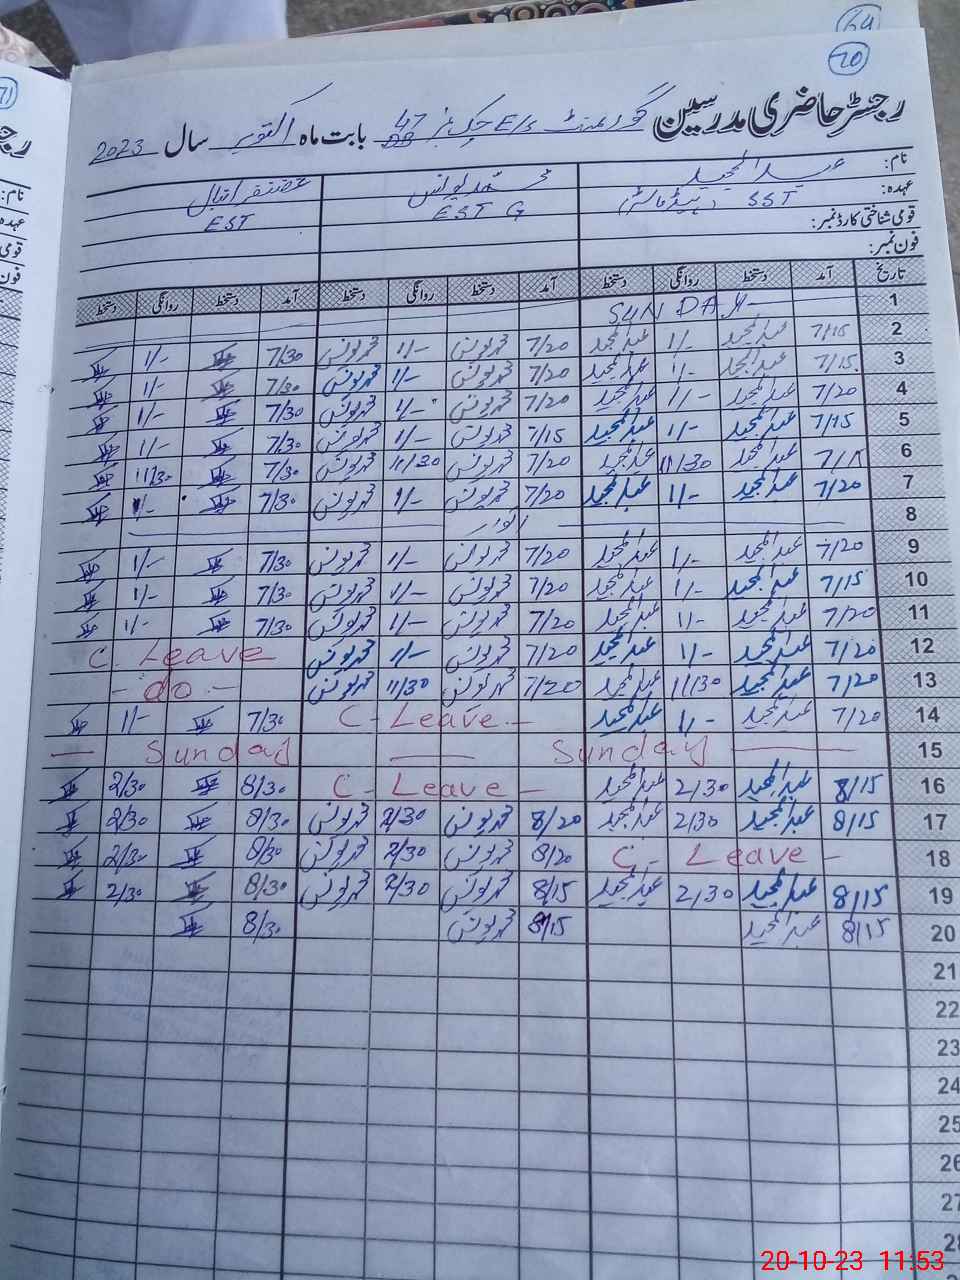 64
70
71
رجسٹر حاضری مدرسین
گورنمنٹ E/s چک نمبر 47 DB بابت ماہ اکتوبر سال 2023
نام: عبدالمجید محمد یونس غضنفر اقبال
عہدہ: SST (ہیڈ ماسٹر) EST G EST
قومی شناختی کارڈ نمبر:
فون نمبر:
تاریخ آمد دستخط روانگی دستخط آمد دستخط روانگی دستخط آمد دستخط روانگی دستخط
1 SUNDAY
2 7/15 عبدالمجید 1/- عبدالمجید 7/20 محمد یونس 1/- محمد یونس 7/30 1/-
3 7/15 عبدالمجید 1/- عبدالمجید 7/20 محمد یونس 1/- محمد یونس 7/30 1/-
4 7/20 عبدالمجید 1/- عبدالمجید 7/20 محمد یونس 1/- محمد یونس 7/30 1/-
5 7/15 عبدالمجید 1/- عبدالمجید 7/15 محمد یونس 1/- محمد یونس 7/30 1/-
6 عبدالمجید 11/30 عبدالمجید 7/20 محمد یونس 11/30 محمد یونس 7/30 11/30
7 7/20 عبدالمجید 1/- عبدالمجید 7/20 محمد یونس 1/- محمد یونس 7/30 1/-
8 اتوار
9 7/20 عبدالمجید 1/- عبدالمجید 7/20 محمد یونس 1/- محمد یونس 7/30 1/-
10 7/15 عبدالمجید 1/- عبدالمجید 7/20 محمد یونس 1/- محمد یونس 7/30 1/-
11 7/20 عبدالمجید 1/- عبدالمجید 7/20 محمد یونس 1/- محمد یونس 7/30 1/-
12 7/20 عبدالمجید 1/- عبدالمجید 7/20 محمد یونس 1/- محمد یونس C. Leave
13 7/20 عبدالمجید 11/30 عبدالمجید 7/20 محمد یونس 11/30 محمد یونس - do -
14 7/20 عبدالمجید 1/- عبدالمجید C - Leave - 7/30 1/-
15 Sunday Sunday
16 8/15 عبدالمجید 2/30 عبدالمجید C - Leave - 8/30 2/30
17 8/15 عبدالمجید 2/30 عبدالمجید 8/20 محمد یونس 2/30 محمد یونس 8/30 2/30
18 C - Leave - 8/20 محمد یونس 2/30 محمد یونس 8/30 2/30
19 8/15 عبدالمجید 2/30 عبدالمجید 8/15 محمد یونس 2/30 محمد یونس 8/30 2/30
20 8/15 عبدالمجید 8/15 محمد یونس 8/30
21
22
23
24
25
26
27
28
20-10-23 11:53